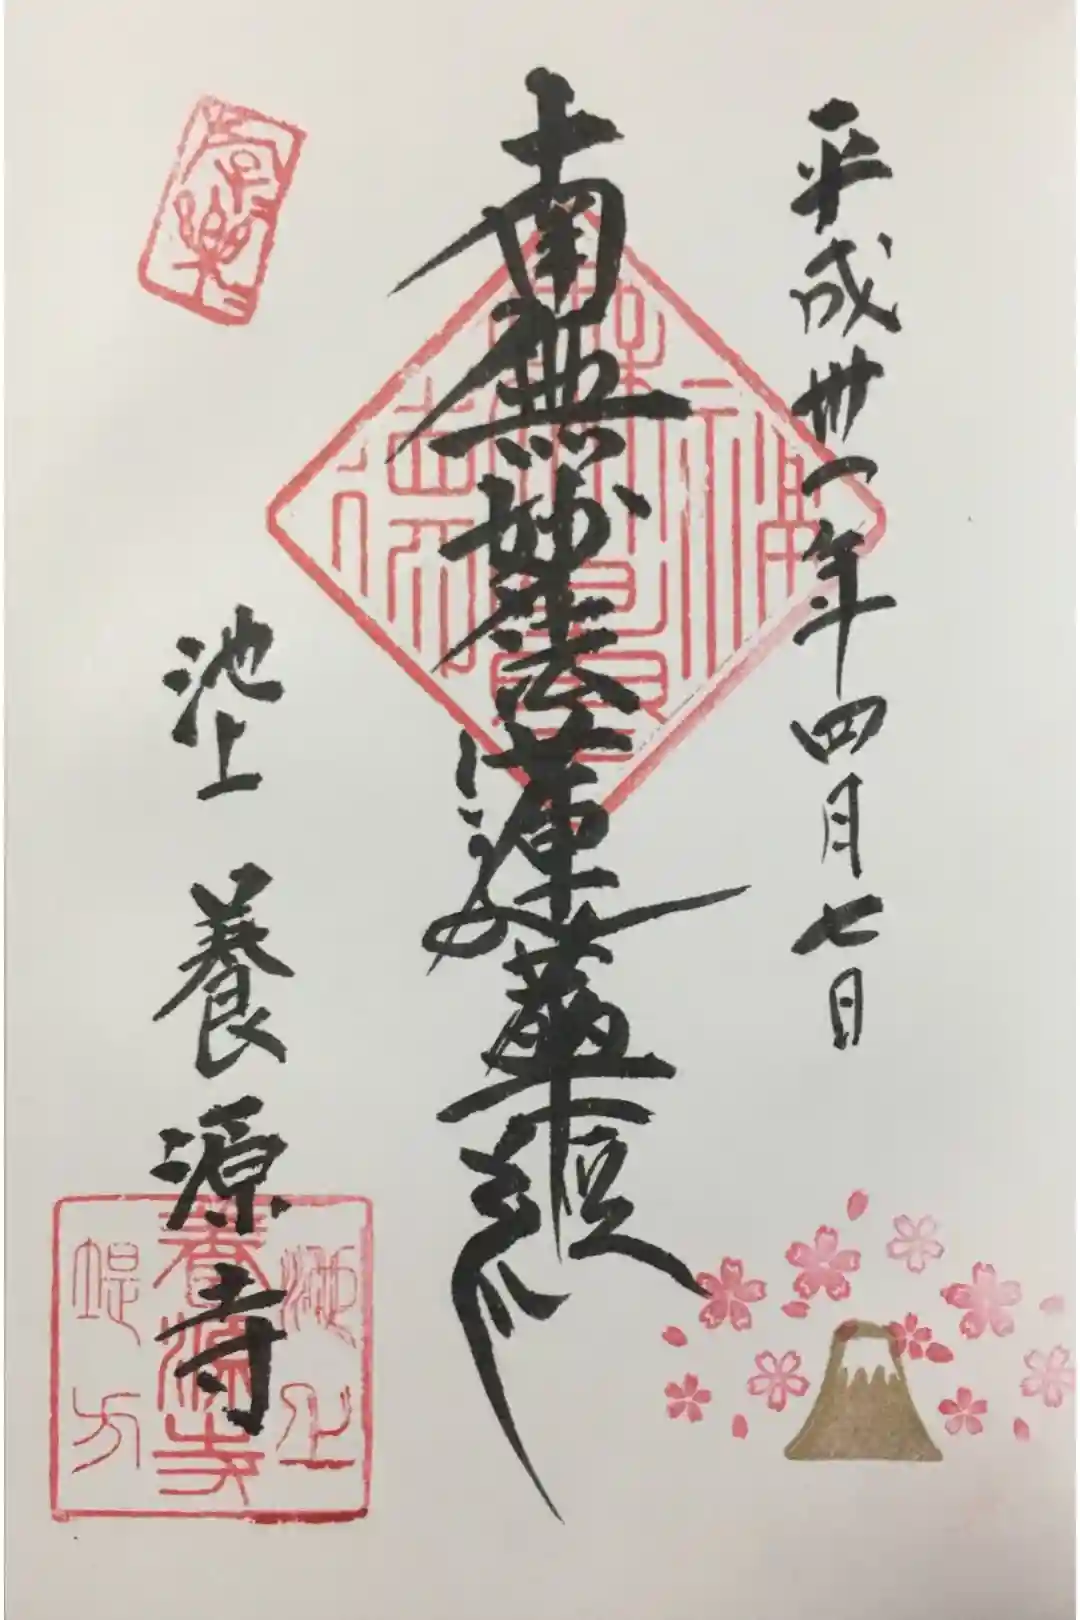 平成卅一年四月七日
南無妙法蓮華経
池上 養源寺
池上
養源寺
堤方